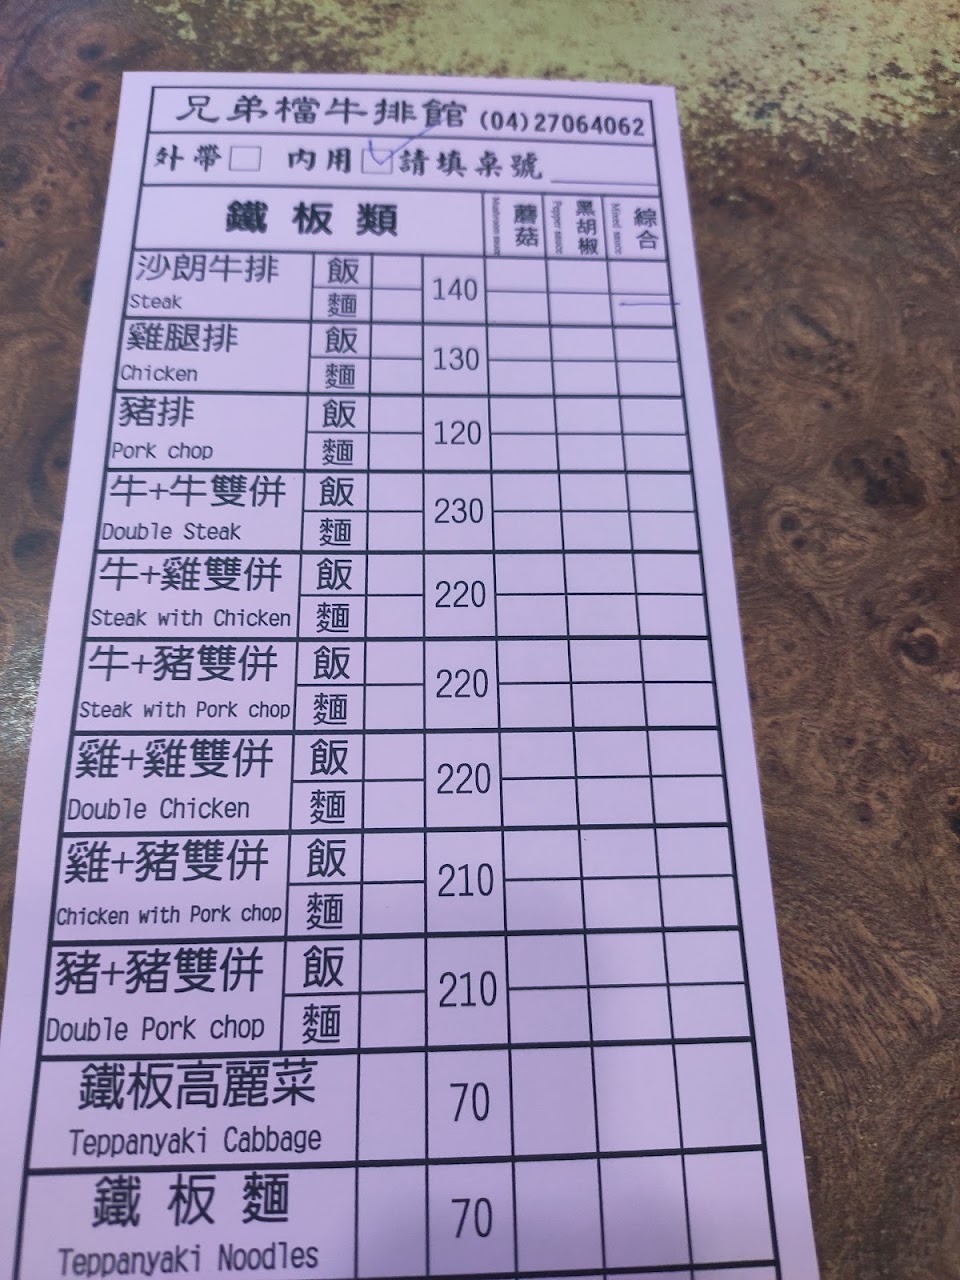 兄弟檔牛排館 (04)27064062
外帶□ 內用□請填桌號
鐵板類 蘑菇 Mushroom sauce 黑胡椒 Pepper sauce 綜合 Mixed sauce
沙朗牛排 飯 140
Steak 麵
雞腿排 飯 130
Chicken 麵
豬排 飯 120
Pork chop 麵
牛+牛雙併 飯 230
Double Steak 麵
牛+雞雙併 飯 220
Steak with Chicken 麵
牛+豬雙併 飯 220
Steak with Pork chop 麵
雞+雞雙併 飯 220
Double Chicken 麵
雞+豬雙併 飯 210
Chicken with Pork chop 麵
豬+豬雙併 飯 210
Double Pork chop 麵
鐵板高麗菜 70
Teppanyaki Cabbage
鐵板麵 70
Teppanyaki Noodles